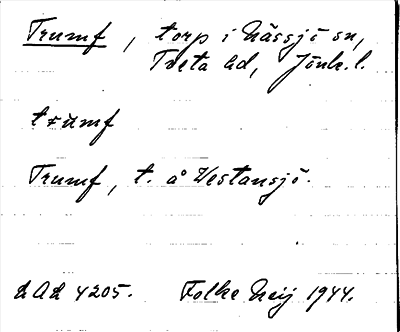 Trumf, torp i Nässjö sn,
Tveta hd, Jönk. l.
trumf
Trumf, t. å Westansjö.
dAd 4205. Folke Heij 1944.